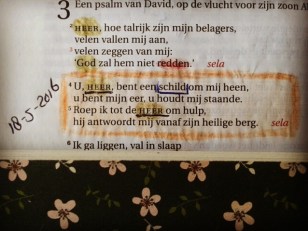 3 Een psalm van David, op de vlucht voor zijn zoon A
2 HEER, hoe talrijk zijn mijn belagers,
velen vallen mij aan,
3 velen zeggen van mij:
'God zal hem niet redden.' sela
4 U, HEER, bent een schild om mij heen,
u bent mijn eer, u houdt mij staande.
5 Roep ik tot de HEER om hulp,
hij antwoordt mij vanaf zijn heilige berg. sela
6 Ik ga liggen, val in slaap
18-5-2016